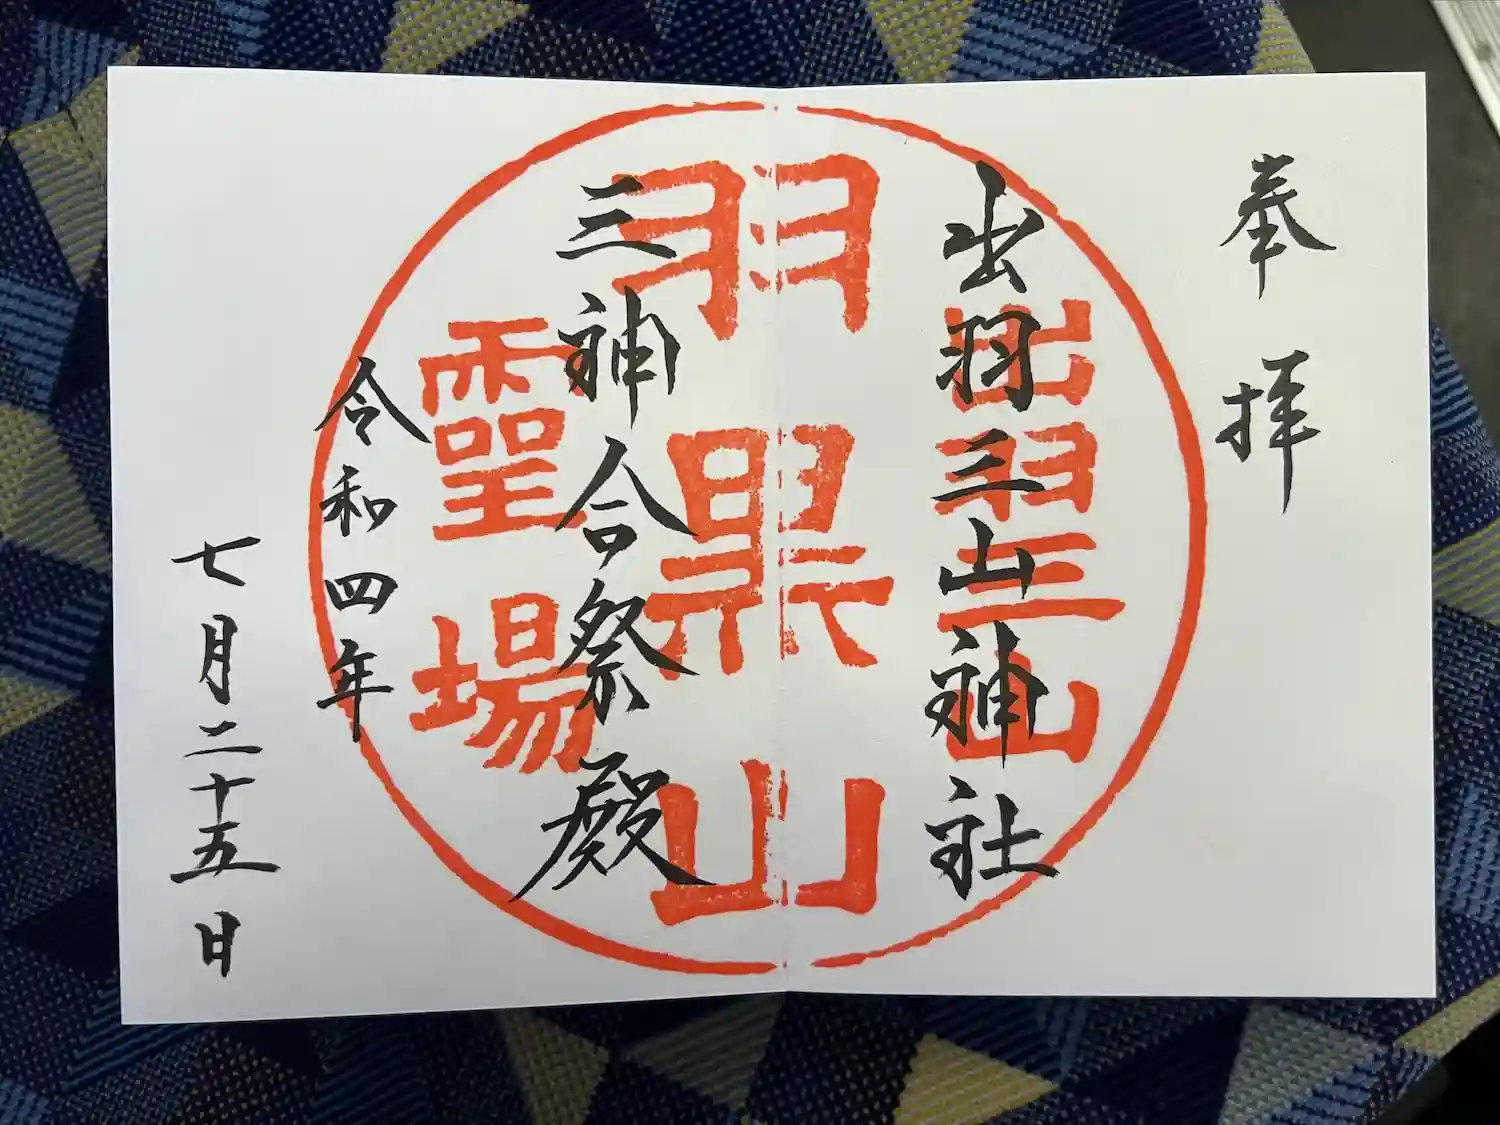 奉拝
出羽三山神社
三神合祭殿
令和四年
七月二十五日
出羽三山
羽黒山
霊場